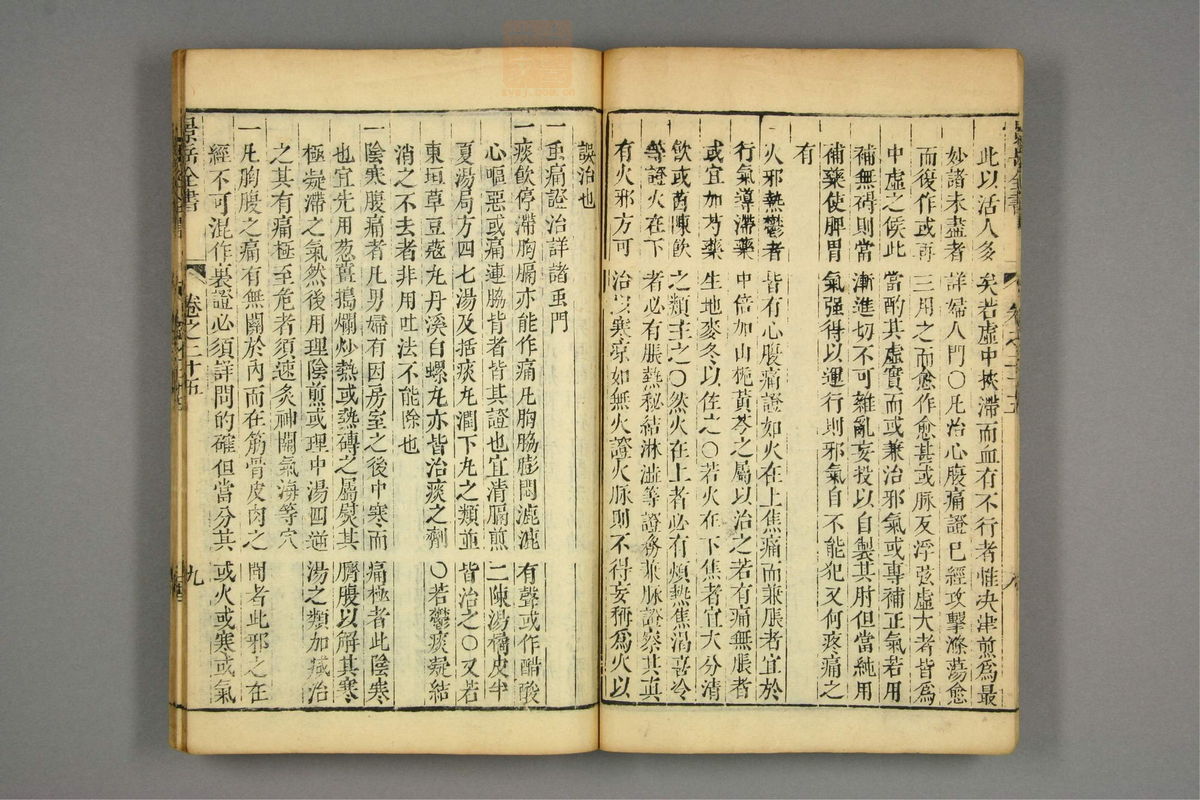 此以活人多矣若虛中挾滯而血有不行者惟決津煎為最
妙諸未盡者詳婦人門〇凡治心腹痛證已經攻擊滌蕩愈
而復作或再三用之而愈作愈甚或脉反浮弦虛大者皆為
中虛之候此當酌其虛實而或兼治邪氣或專補正氣若用
補無碍則當漸進切不可雜亂妄投以自製其肘但當純用
補藥使脾胃氣强得以運行則邪氣自不能犯又何疼痛之
有
火邪熱鬱者皆有心腹痛證如火在上焦痛而兼脹者宜於
行氣導滯藥中倍加山梔黃芩之屬以治之若有痛無脹者
或宜加芍藥生地麥冬以佐之〇若火在下焦者宜大分清
飲或茵陳飲之類主之〇然火在上者必有煩熱焦渴喜冷
等證火在下者必有脹熱秘結淋澁等證務兼脉證察其真
有火邪方可治以寒凉如無火證火脉則不得妄稱為火以
誤治也
一虫痛證治詳諸虫門
一痰飲停滯胸膈亦能作痛凡胸脇膨悶漉漉有聲或作醋酸
心嘔惡或痛連脇背者皆其證也宜清膈煎二陳湯橘皮半
夏湯局方四七湯及括痰丸潤下丸之類並皆治之〇又若
東垣草豆蔻丸丹溪白螺丸亦皆治痰之劑〇若鬱痰凝結
消之不去者非用吐法不能除也
一陰寒腹痛者凡男婦有因房室之後中寒而痛極者此陰寒
也宜先用葱薑搗爛炒熱或熱磚之屬熨其臍腹以解其寒
極凝滯之氣然後用理陰煎或理中湯四逆湯之類加減治
之其有痛極至危者須速灸神闕氣海等穴
一凡胸腹之痛有無關於內而在筋骨皮肉之間者此邪之在
經不可混作裏證必須詳問的確但當分其或火或寒或氣
景岳全書
卷之二十五
九